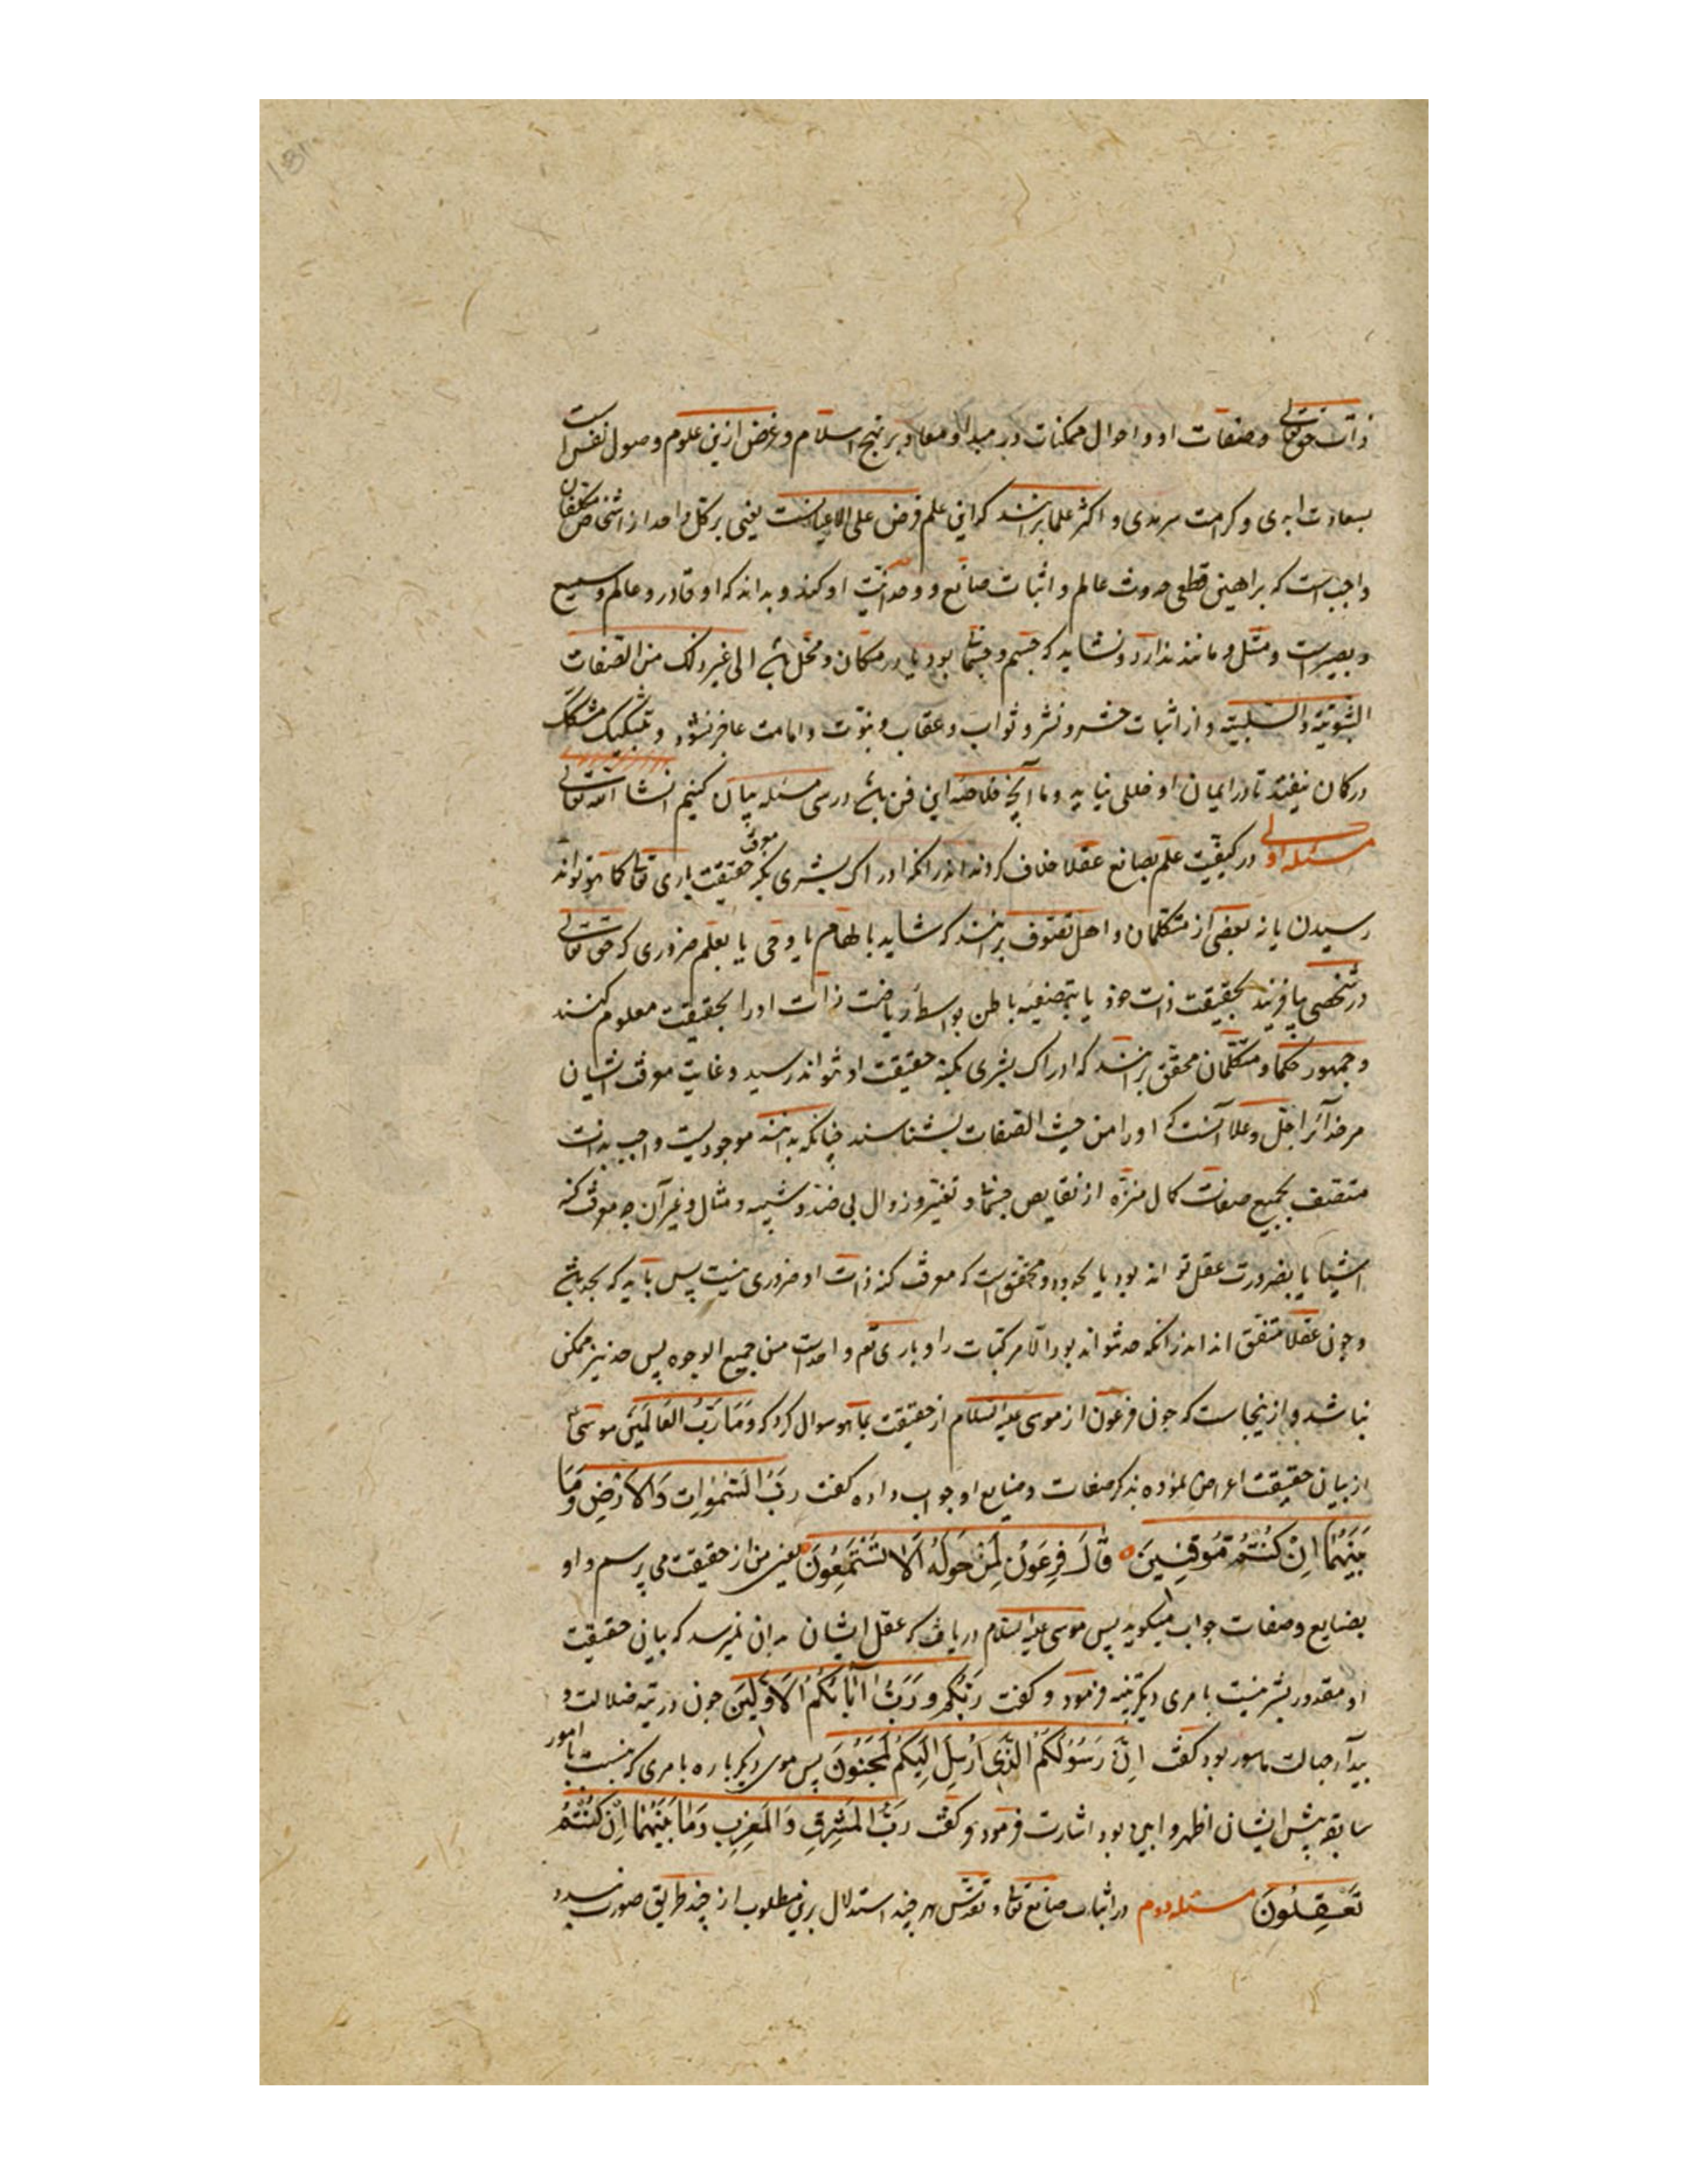 ذات حق تعالی و صفات او و احوال ممکنات در مبدا و معاد بر نهج اسلام و غرض ازین علوم وصول نفس است
بسعادت ابدی و کرامت سرمدی و اکثر علما برانند که این علم فرض علی الاعیانست یعنی بر کل واحد از اشخاص مکلفان
واجبست که براهین قطعی حدوث عالم و اثبات صانع و وحدانیت او کند و بداند که او قادر و عالم و سمیع
و بصیر است و مثل و مانند ندارد و نشاید که جسم و جسمانی بود یا در مکان و محل باشد الی غیر ذلک من الصفات
الثبوتیة و السلبیة و از اثبات حشر و نشر و ثواب و عقاب و نبوت و امامت عاجز نشود و بتشکیک مشکک
در گمان نیفتد تا در ایمان او خللی نیاید و ما آنچه خلاصه این فن باشد در سی مسئله بیان کنیم انشا الله تعالی
مسئله اولی در کیفیت علم بصانع عقلا خلاف کردند اندرانکه ادراک بشری بکنه معرفت حقیقت باری تعالی کما هو تواند
رسیدن یا نه بعضی از متکلمان و اهل تصوف برانند که شاید بالهام یا وحی یا بعلم ضروری که حق تعالی
در شخصی بیافریند بحقیقت ذات خود یا بتصفیه باطن بواسطه ریاضت ذات او را بحقیقت معلوم کنند
و جمهور حکما و متکلمان محقق برانند که ادراک بشری بکنه حقیقت او نتواند رسید و غایت معرفت ایشان
مر خدا را جل و علا آنست که او را من حیث الصفات بشناسند چنانکه بدانند موجودیست واجب بذات
متصف بجمیع صفات کمال منزه از نقایص جسمانی و تغیر و زوال بی ضد و شبیه و مثال و غیر آن چه معرفت کنه
اشیا یا بضرورت عقل تواند بود یا بحدود و محقق است که معرفت کنه ذات او ضروری نیست پس باید که بحد باشد
و چون عقلا متفق اند اندرانکه حد نتواند بود الا مرکبات را و باری تع واحدست من جمیع الوجوه پس حد نیز ممکن
نباشد و ازینجاست که چون فرعون از موسی علیه السلام از حقیقت بما هو سوال کرد که وَمَا رَبُّ العَالَمِینَ موسی ع
از بیان حقیقت اعراض نموده بذکر صفات و صنایع او جواب داده گفت رَبُّ السَّمٰوَاتِ وَالاَرْضِ وَمَا
بَیْنَهُمَا اِنْ کُنْتُمْ مُوقِنِینَ قَالَ فِرعَوْنُ لِمَنْ حَوْلَهُ اَلَا تَسْتَمِعُونَ یعنی من از حقیقت می پرسم و او
بصنایع و صفات جواب میگوید پس موسی علیه السلام دریافت که عقل ایشان بدان نمیرسد که بیان حقیقت
او مقدور بشر نیست بامری دیگر تنبیه فرمود و گفت رَبُّکُمْ وَرَبُّ آبَائِکُمُ الاَوَّلِینَ چون در تیه ضلالت و
بیدا جهالت مأسور بود گفت اِنَّ رَسُولَکُمُ الَّذِی اُرْسِلَ اِلَیْکُمْ لَمَجْنُونٌ پس موسی دیگر باره بامری که نسبت با امور
سابقه پیش ایشان اظهر و ابین بود اشارت فرمود و گفت رَبُّ المَشْرِقِ وَالمَغْرِبِ وَمَا بَیْنَهُمَا اِنْ کُنْتُمْ
تَعْقِلُونَ مسئله دوم در اثبات صانع تعالی و تقدس هر چند استدلال برین مطلوب از چند طریق صورت بندد